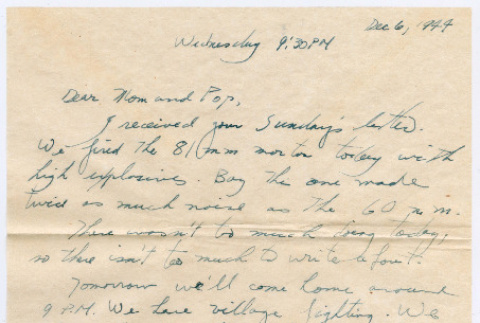 Dec 6, 1944
Wednesday 9:30 PM
Dear Mom and Pop,
I received your Sunday's letter.
We fired the 81 mm mortar today with
high explosives. Boy the one made
twice as much noise as the 60 m.m.
There wasn't too much doing today,
so there isn't too much to write about.
Tomorrow we'll come home around
9 P.M. We have village fighting. We